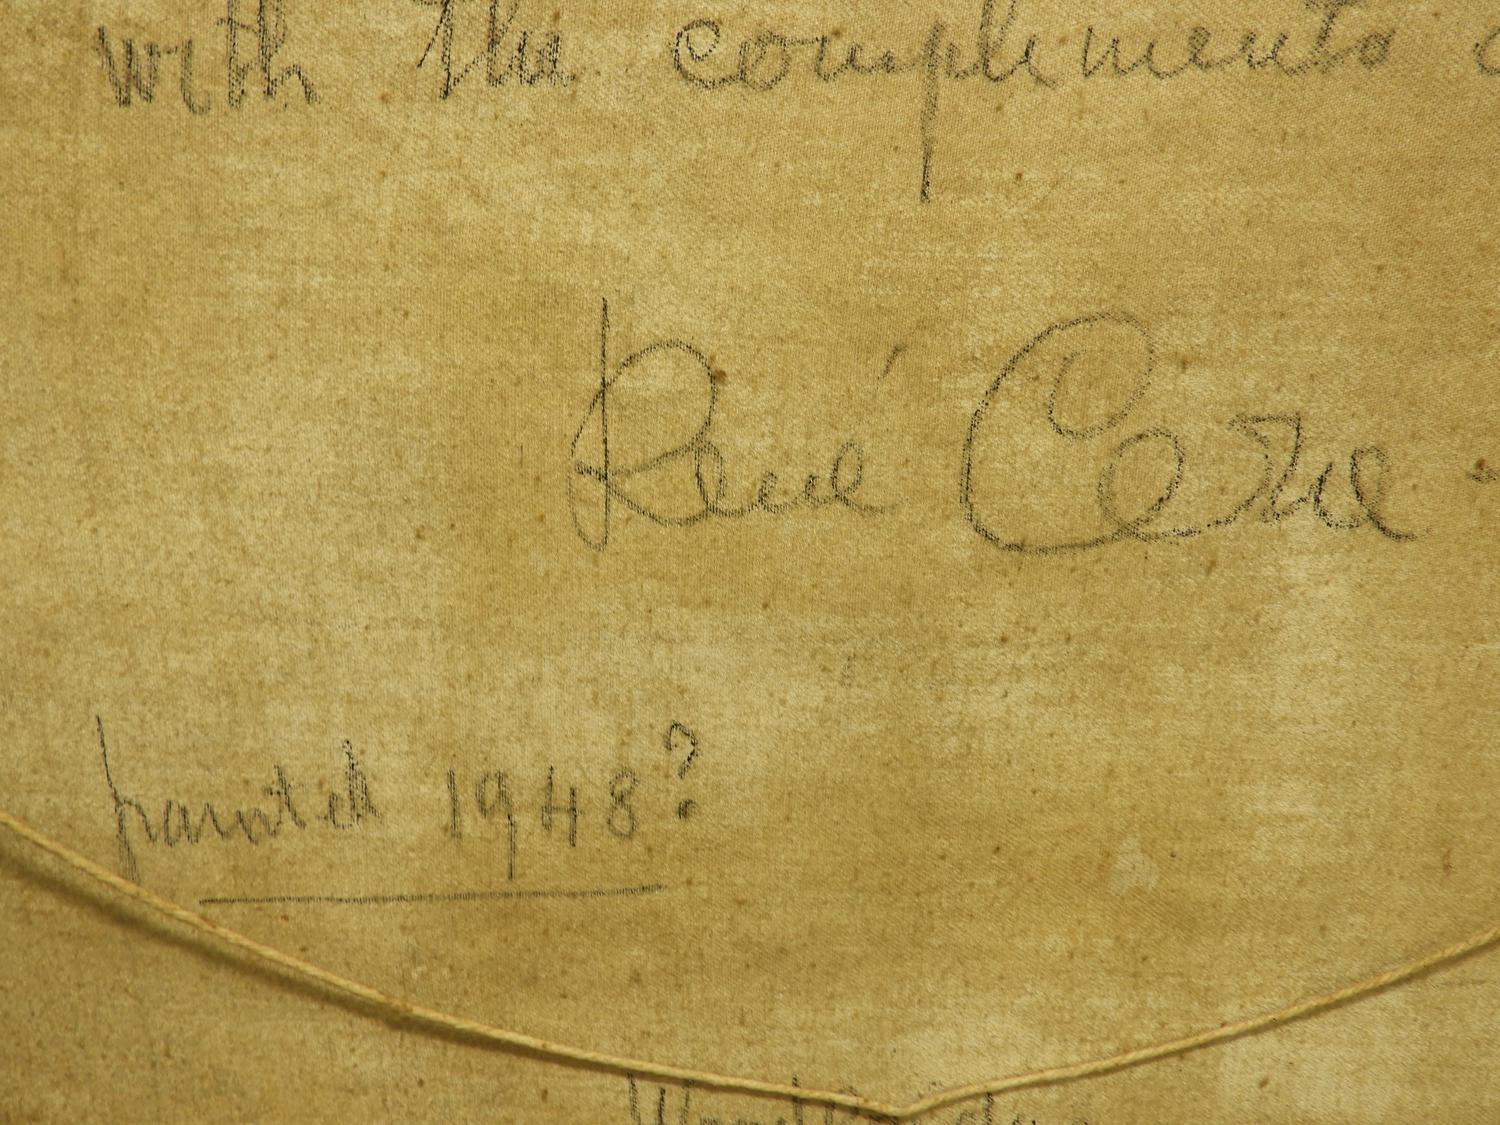 with the compliments
René
painted 1948?